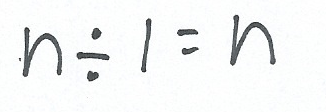 n ÷ 1 = n